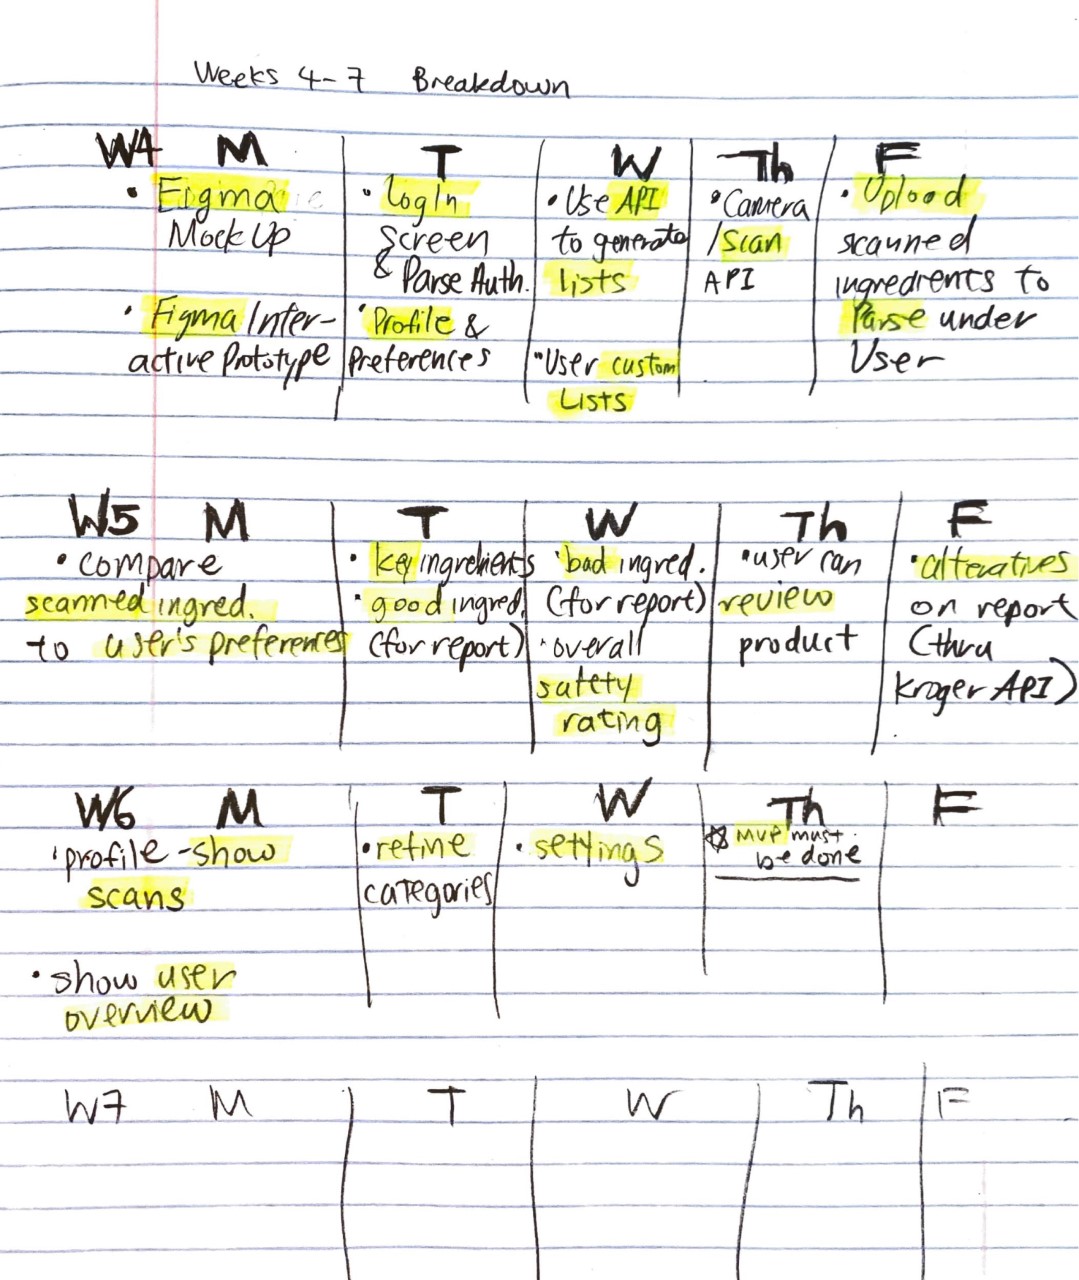 Weeks 4-7 Breakdown
W4 M T W Th F
• Figma
Mock Up
• Figma Inter-
active Prototype
• Login
Screen
& Parse Auth.
• Profile &
Preferences
• Use API
to generate
lists
• User custom
Lists
• Camera
/Scan
API
• Upload
scanned
ingredients to
Parse under
User
W5 M T W Th F
• compare
scanned ingred.
to user's preferences
• key ingredients
• good ingred.
(for report)
• bad ingred.
(for report)
• overall
safety
rating
• user can
review
product
• alteratives
on report
(thru
kroger API)
W6 M T W Th F
• profile - show
scans
• show user
overview
• refine
categories
• settings
☆ MVP must
be done
W7 M T W Th F